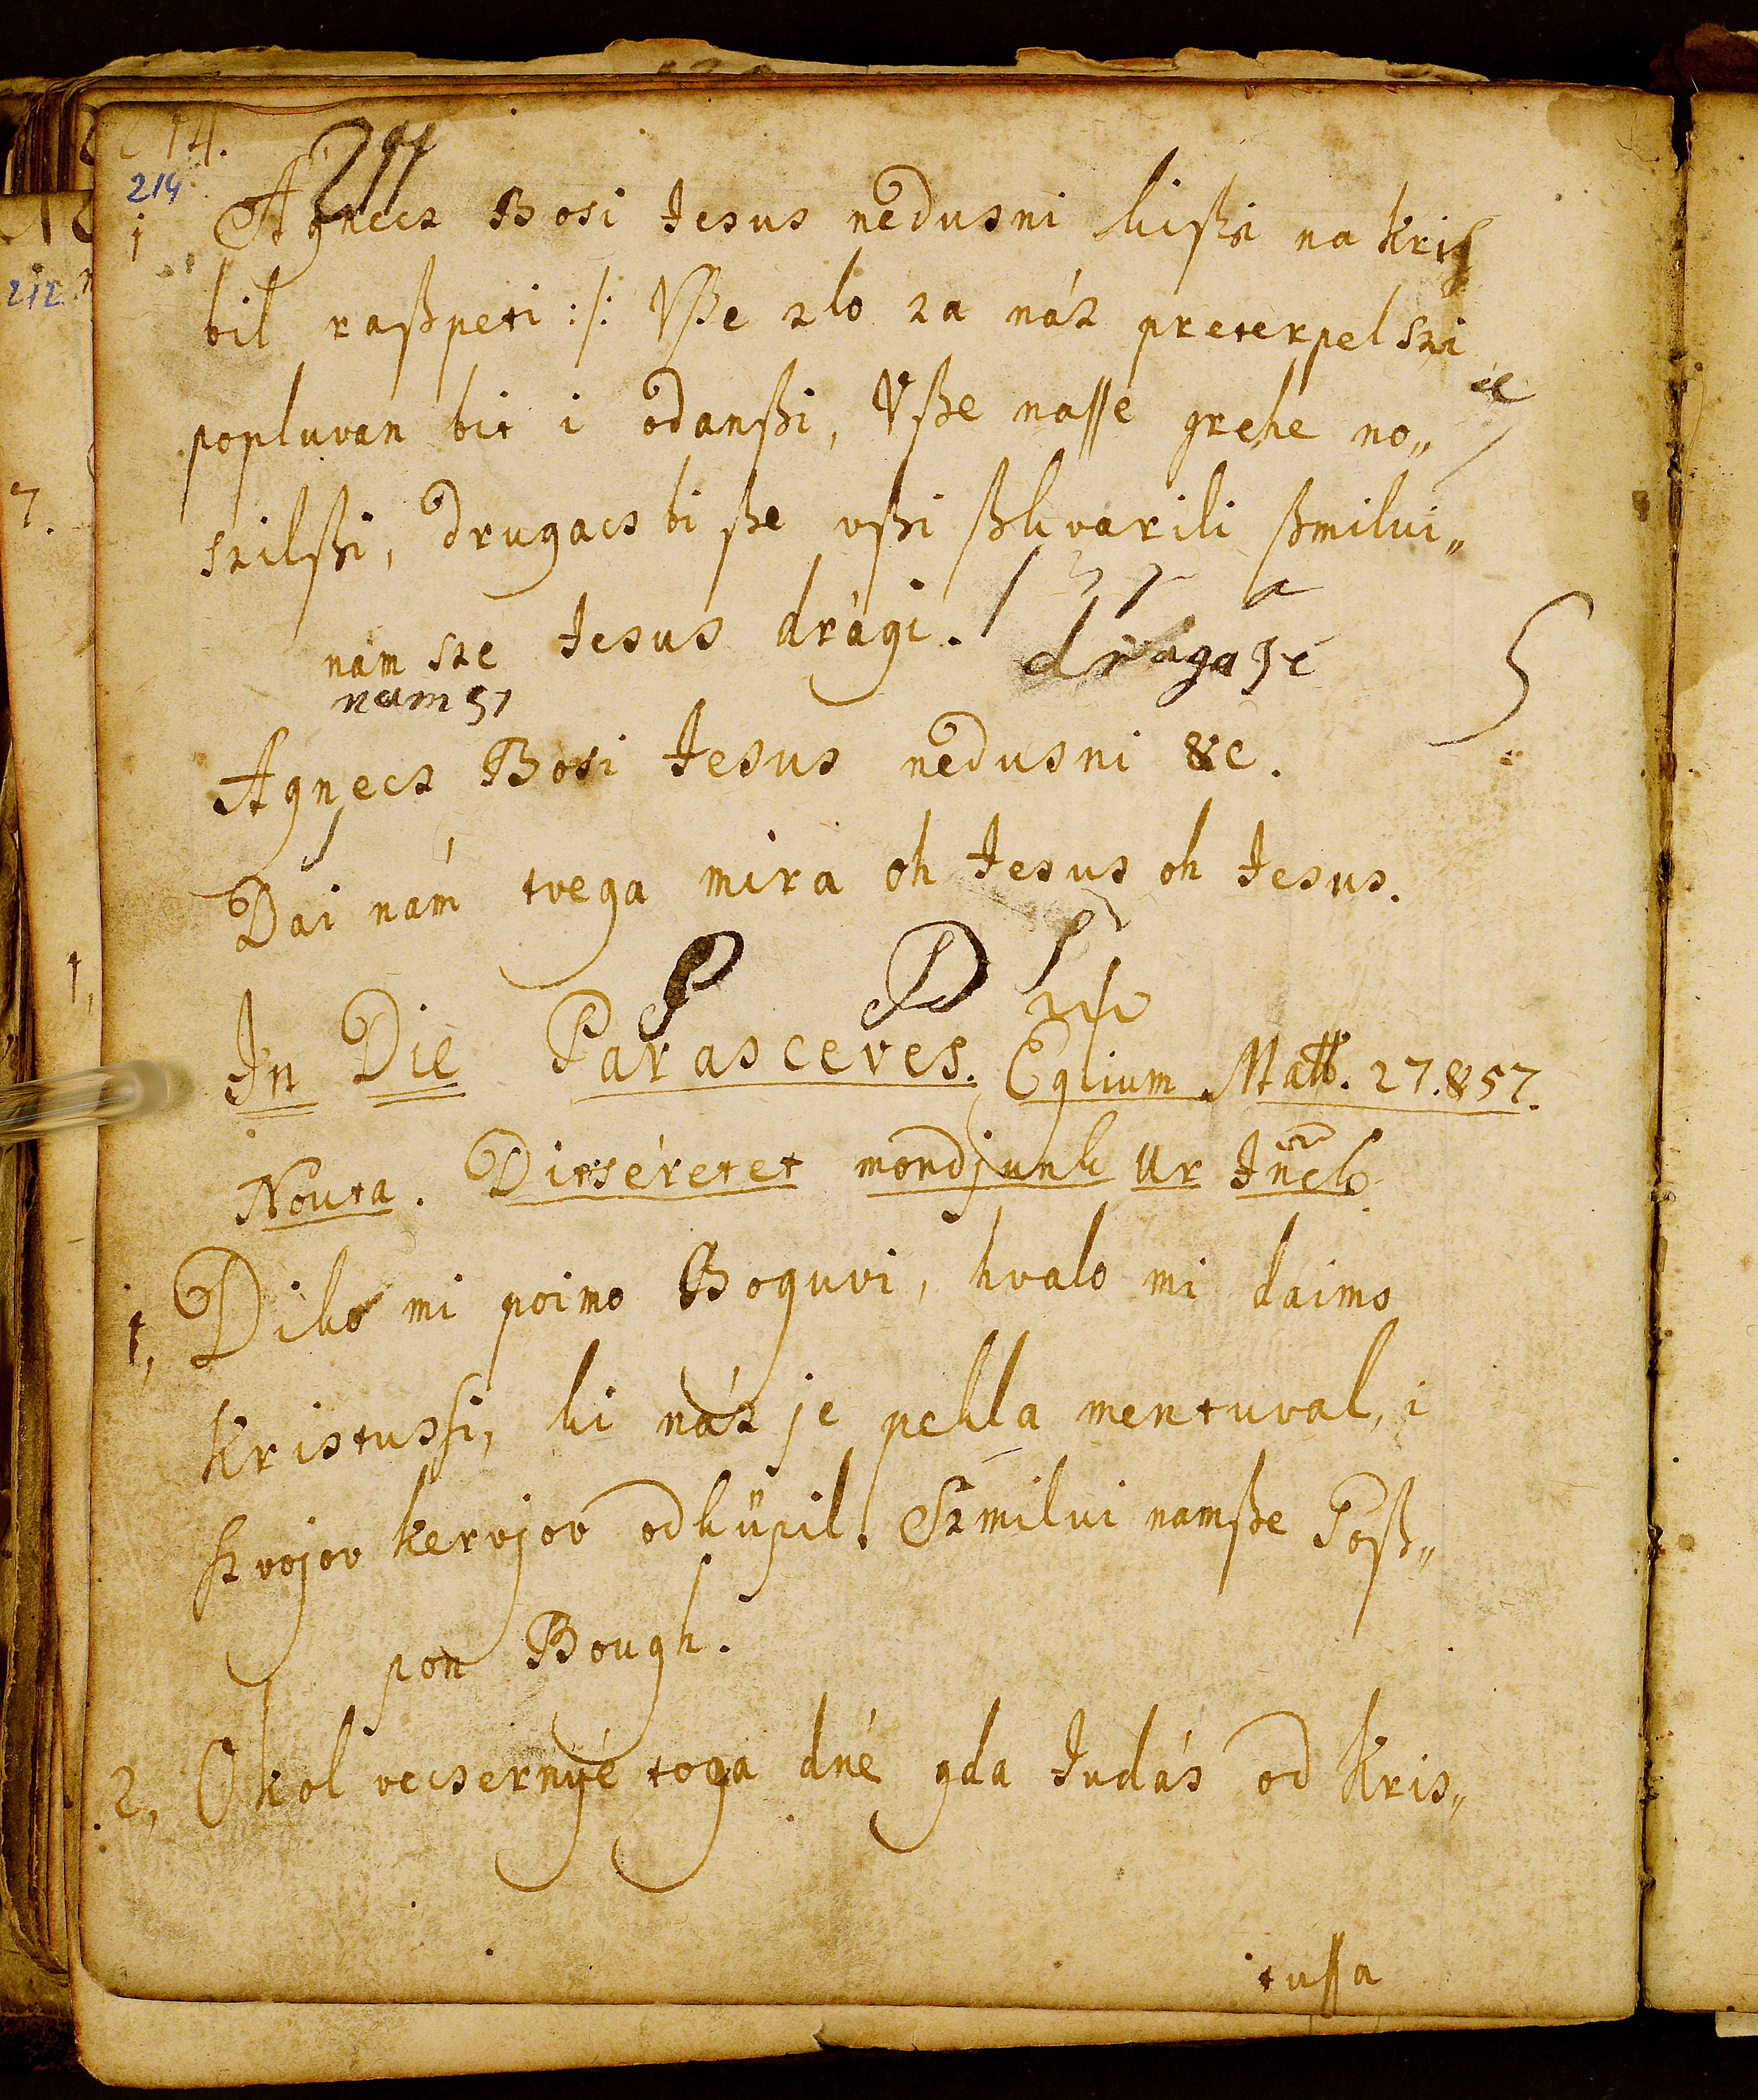 214.
214
1 Agnecz Bosi Jesus nedusni kißi na Kris
bil raßpeti :/: Vße zlo za náz preterpel szi
popluvan bit i odanßi, Vße nasse grehe no„
szilßi, drugacs bi ße vßi ßkvarili ßmilui„
nám sze Jesus drági.
draga
nam
Agnecz Bosi Jesus nedusni &c.
Dai nám tvega mira oh Jesus oh Jesus.
P D
In Die Parasceves. Eglium Matth. 27. & 57.
Nouta. Ditséretet mondjunk Ur
1, Diko mi poimo Boguvi, hvalo mi daimo
Kristussi, ki náz je pekla mentuval, i
szvojov kervjov odküpil. Szmilui namße Goß„
pon Bough.
2, Okol vecsernyé toga dné gda Judás od Kris„
tussa
7.
212